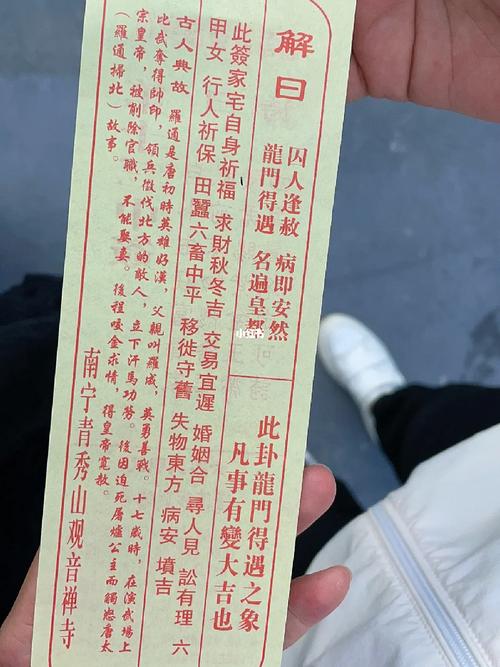 解曰
囚人逢赦 病即安然
龍門得遇 名遍皇都
此卦龍門得遇之象
凡事有變大吉也
此簽家宅自身祈福 求財秋冬吉 交易宜遲 婚姻合 尋人見 訟有理 六
甲女 行人祈保 田蠶六畜中平 移徙守舊 失物東方 病安 墳吉
古人典故 羅通是唐初時英雄好漢，父親叫羅成，英勇善戰。十七歲時，在演武場上
比武奪得帥印，領兵徵伐北方的敵人，立下汗馬功勞。後因迫死屠爐公主而觸怒唐太
宗皇帝，被削除官職，不能娶妻。後程咬金求情，得皇帝寬赦。
（羅通掃北）故事。
南宁青秀山观音禅寺
小红书